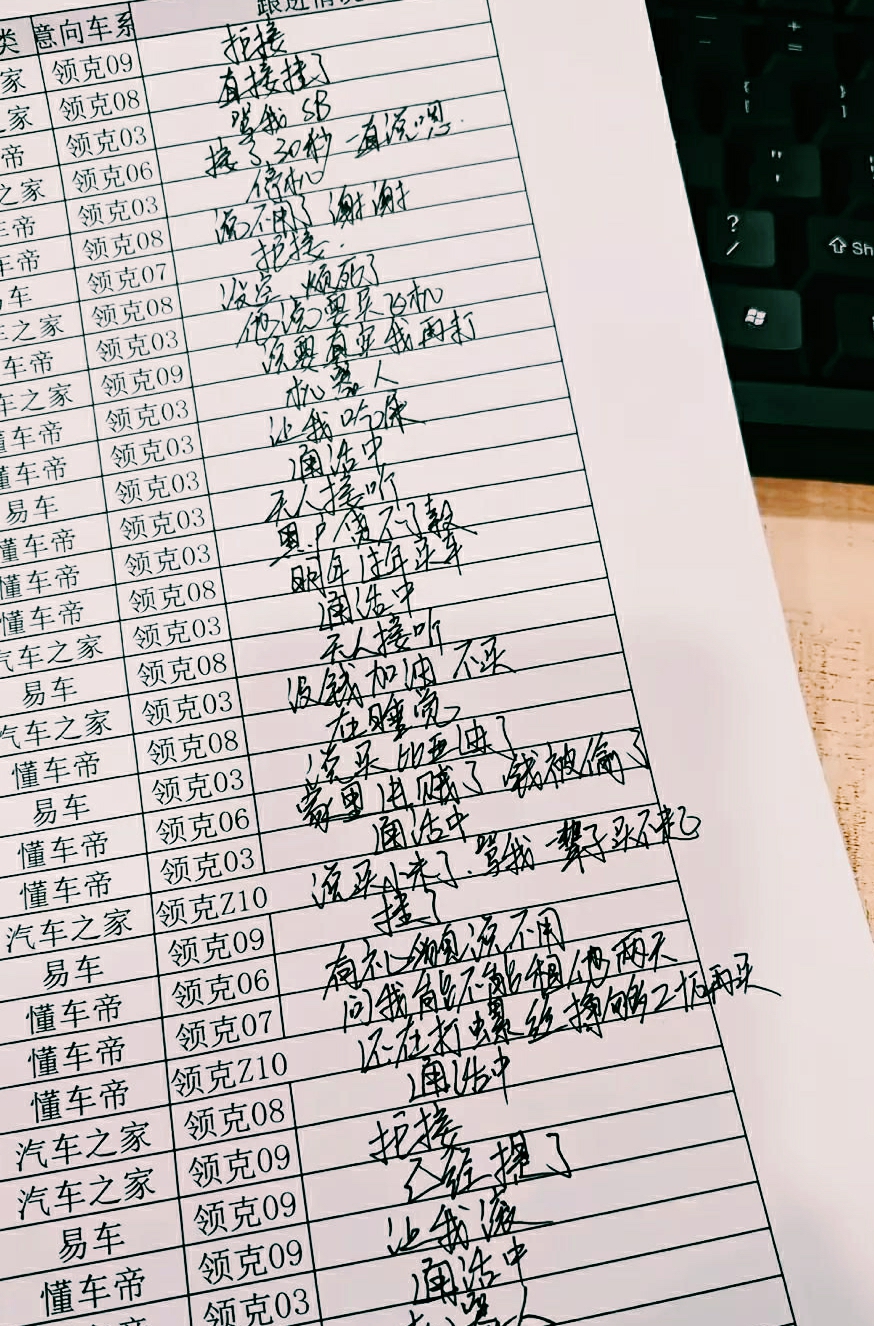 类 意向车系 跟进情况
家 领克09 拒接
之家 领克08 直接挂了
帝 领克03 骂我SB
之家 领克06 接了30秒 一直说嗯.
车帝 领克03 停机
车帝 领克08 说不用了 谢谢
车 领克07 拒接.
之家 领克08 没空 烦死了
车帝 领克03 他说要买飞机
车之家 领克09 说要真买我再打
懂车帝 领克03 机器人
懂车帝 领克03 让我吃屎
易车 领克03 通话中
懂车帝 领克03 无人接听
懂车帝 领克03 黑户贷不了款
懂车帝 领克08 明年过年买车
汽车之家 领克03 通话中
易车 领克08 无人接听
汽车之家 领克03 没钱加油 不买
懂车帝 领克08 在睡觉
易车 领克03 说买比亚迪了
懂车帝 领克06 家里进贼了 钱被偷了
懂车帝 领克03 通话中
汽车之家 领克Z10 说买小米了.骂我一辈子买不起
易车 领克09 挂了
懂车帝 领克06 有礼貌说不用
懂车帝 领克07 问我能不能租他两天
懂车帝 领克Z10 还在打螺丝 攒够 再买
汽车之家 领克08 通话中
汽车之家 领克09 拒接
易车 领克09 已经提了
懂车帝 领克09 让我滚
车帝 领克03 通话中
机器人